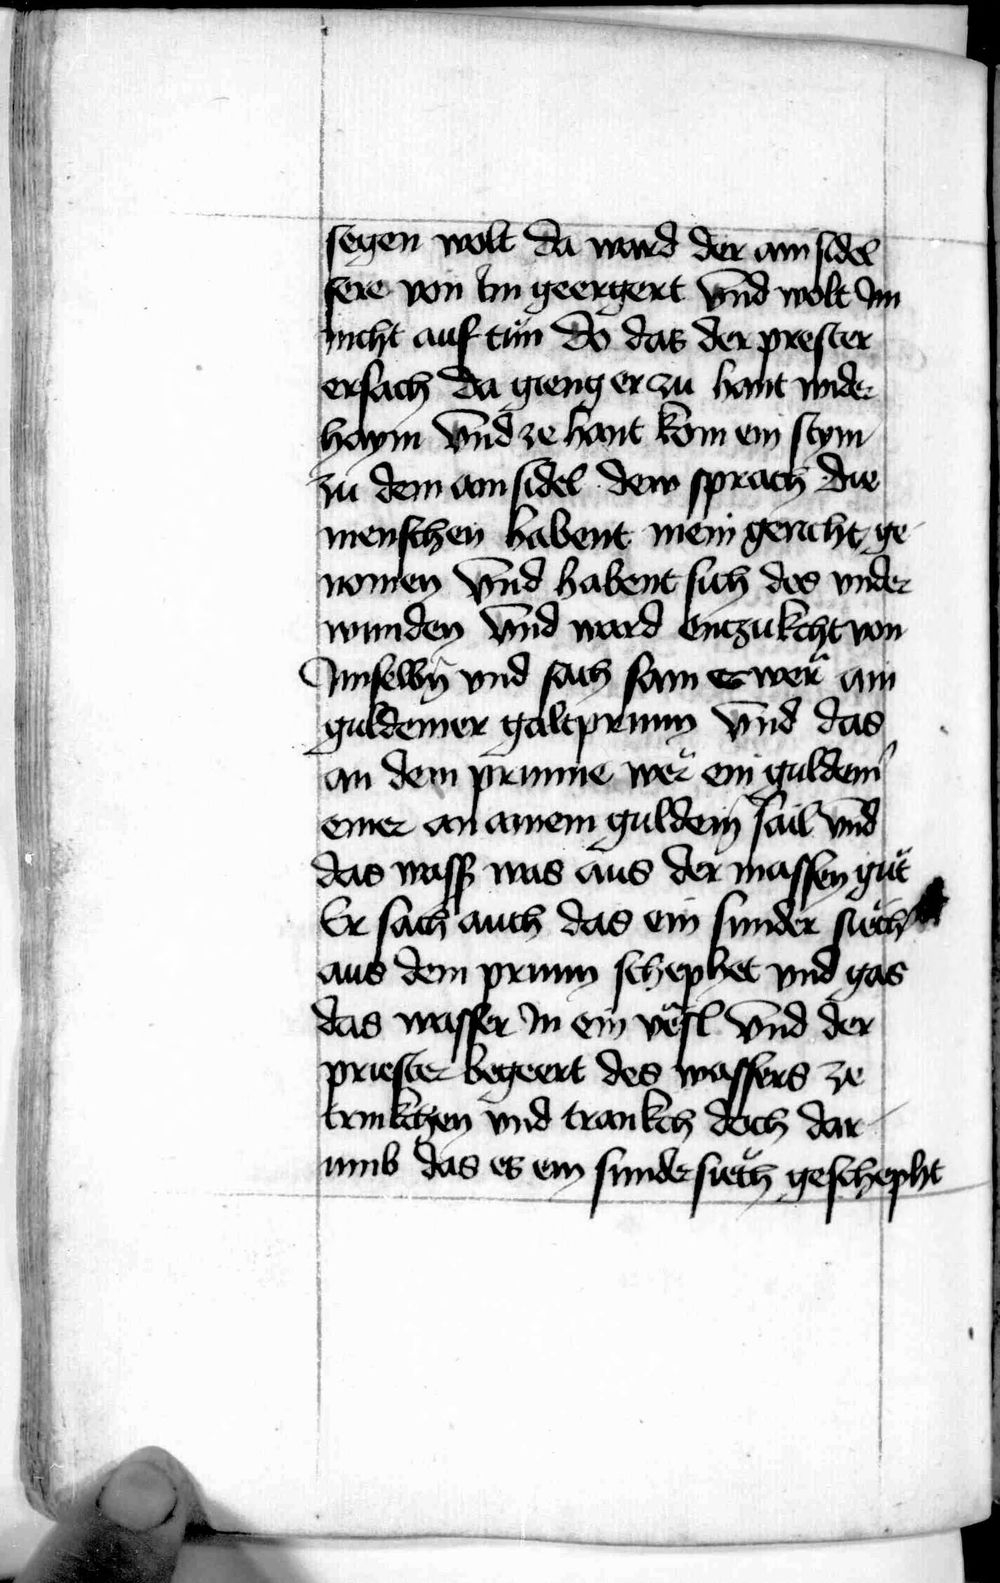 segen wolt da ward der ain sidel
sere von im geergert vnd wolt Im
nicht auf tůn do das der prester
ersach da gieng er zu hant wider
haym vnd ze hant kom ein stym
zu dem ain sidel dew sprach die
menschen habent mein gericht ge
nomen vnd habent sich des vnder
wunden vnd ward entzukcht von
Im selbn̄ vnd sach sam es wer̊ ain
guldeiner galtprunn vnd das
an dem prunne wer̊ ein guldein̄
emer an ainem guldein̄ sail vnd
das wass̄ was aus der massen gůt
Er sach auch das ein sunder siech
aus dem prunn schephet vnd gas
das wasser In ein vesl vnd der
priester begeert des wassers ze
trinkchen vnd trankch doch dar
umb das es ein sunder siech geschepht